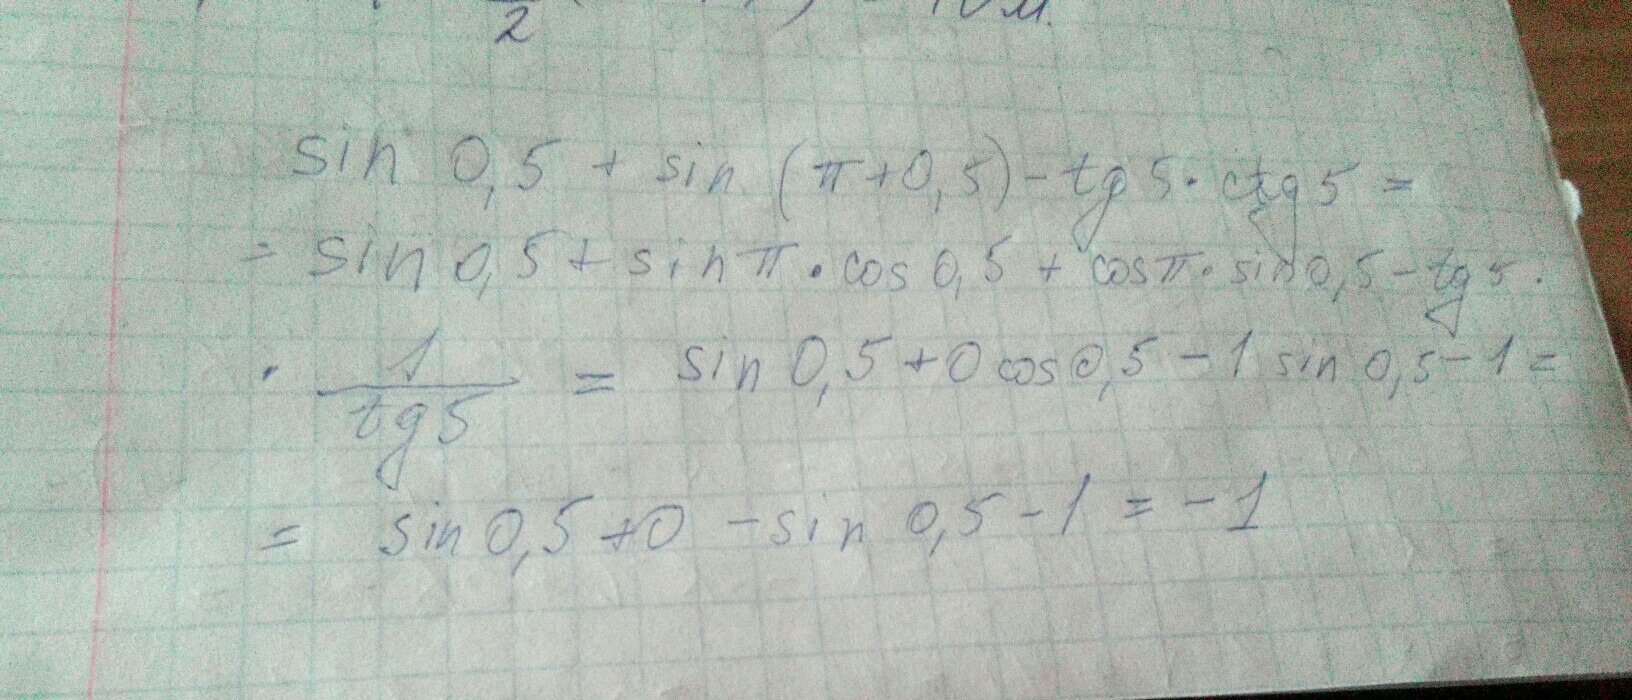 2
sin 0,5 + sin (π+0,5) - tg 5 · ctg 5 =
= sin 0,5 + sin π · cos 0,5 + cos π · sin 0,5 - tg 5 ·
· 1/tg 5 = sin 0,5 + 0 cos 0,5 - 1 sin 0,5 - 1 =
= sin 0,5 + 0 - sin 0,5 - 1 = -1